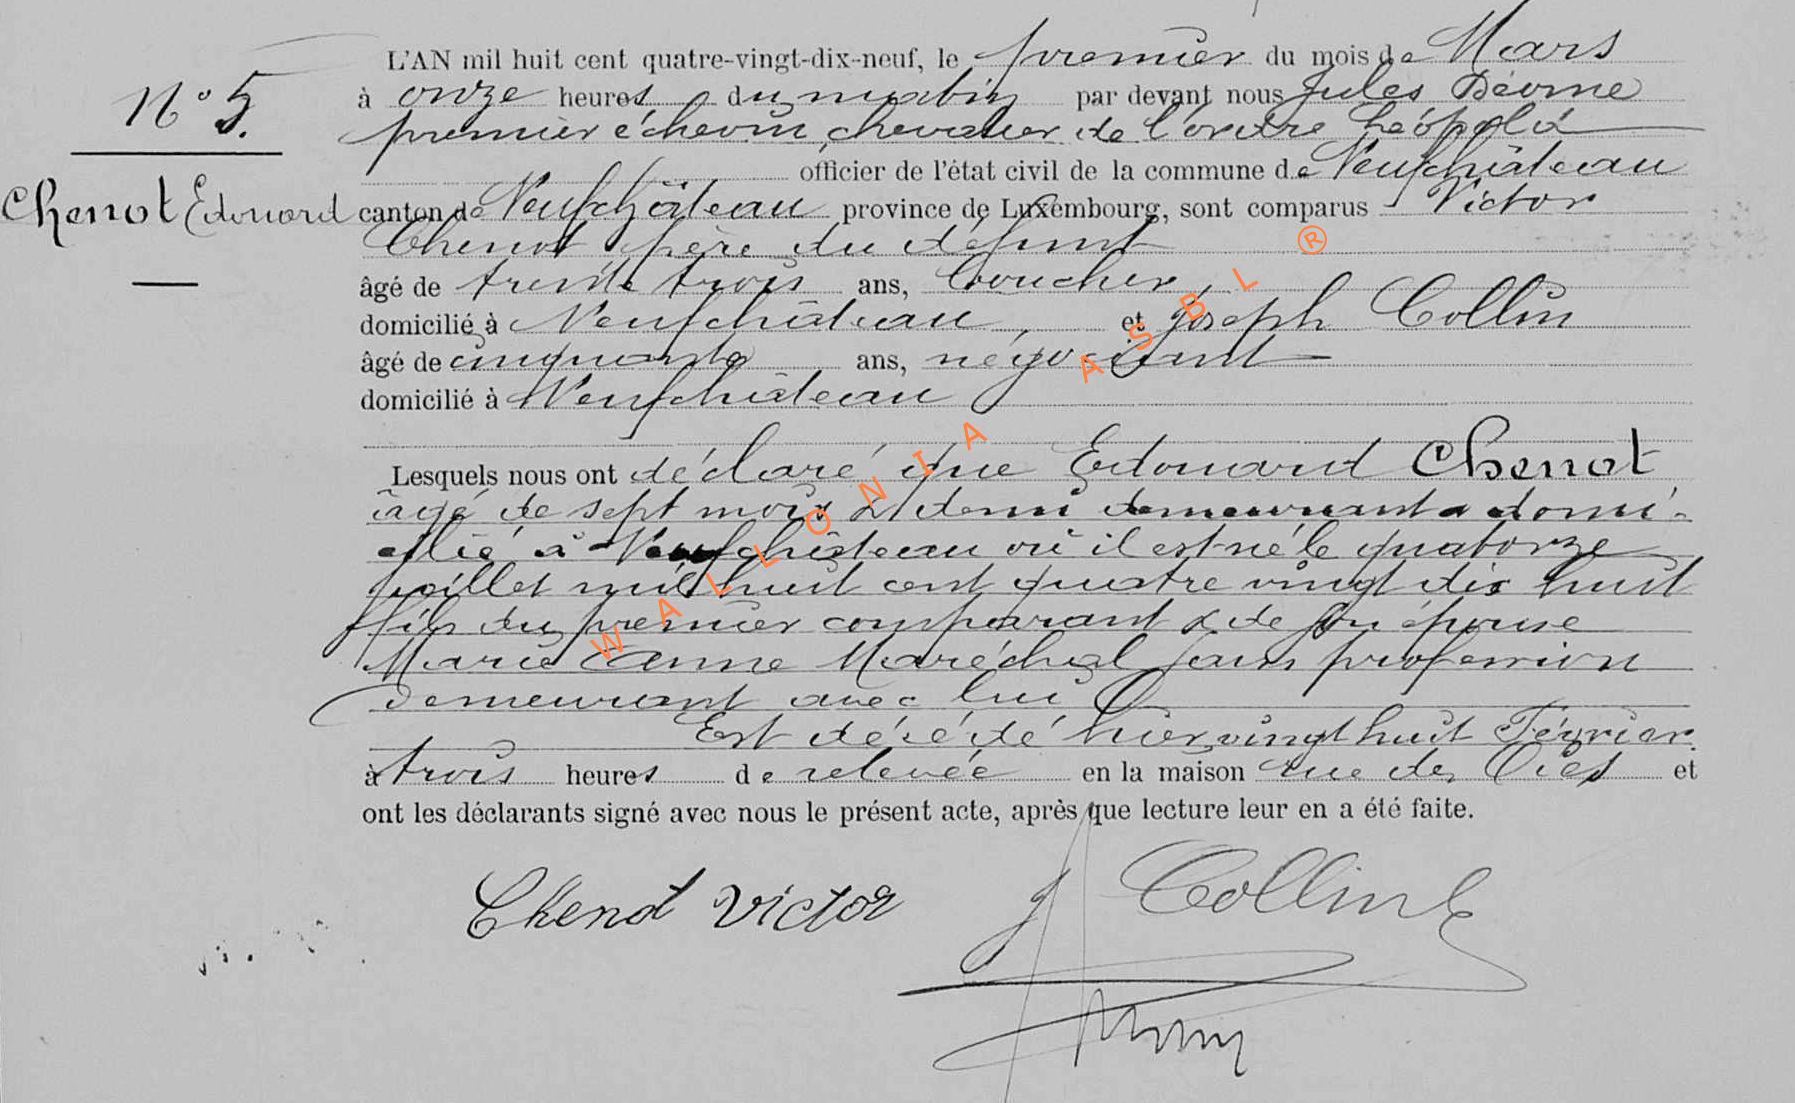 L'AN mil huit cent quatre-vingt-dix-neuf, le premier du mois de Mars
à onze heures du matin par devant nous Jules
premier échevin, chevalier de l'ordre Léopold
officier de l'état civil de la commune de Neufchâteau
canton de Neufchâteau province de Luxembourg, sont comparus Victor
Chenot père du défunt
âgé de trente trois ans, boucher,
domicilié à Neufchâteau, et Joseph Collin
âgé de cinquante ans, négociant
domicilié à Neufchâteau
Lesquels nous ont déclaré que Edouard Chenot
âgé de sept mois & demi demeurant & domi-
cilié à Neufchâteau où il est né le quatorze
juillet mil huit cent quatre vingt dix huit
fils du premier comparant & de son épouse
Marie Anne Maréchal sans profession
demeurant avec lui
Est décédé hier vingt huit Février
à trois heures de relevée en la maison rue des Oies et
ont les déclarants signé avec nous le présent acte, après que lecture leur en a été faite.
N° 5.
Chenot Edouard
Chenot Victor
J Collin
WALLONIA ASBL ®